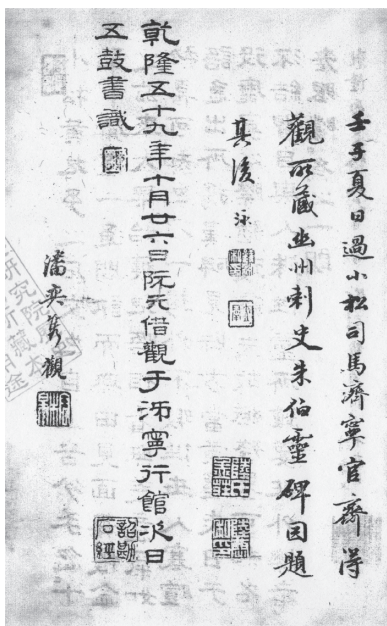 壬子夏日過小松司馬濟寧官齋得
觀所藏幽州刺史朱伯靈碑因題
其後 泳
乾隆五十九年十月廿六日阮元借觀于泲寧行館次日
五鼓書識
詔勘石經
潘奕雋觀